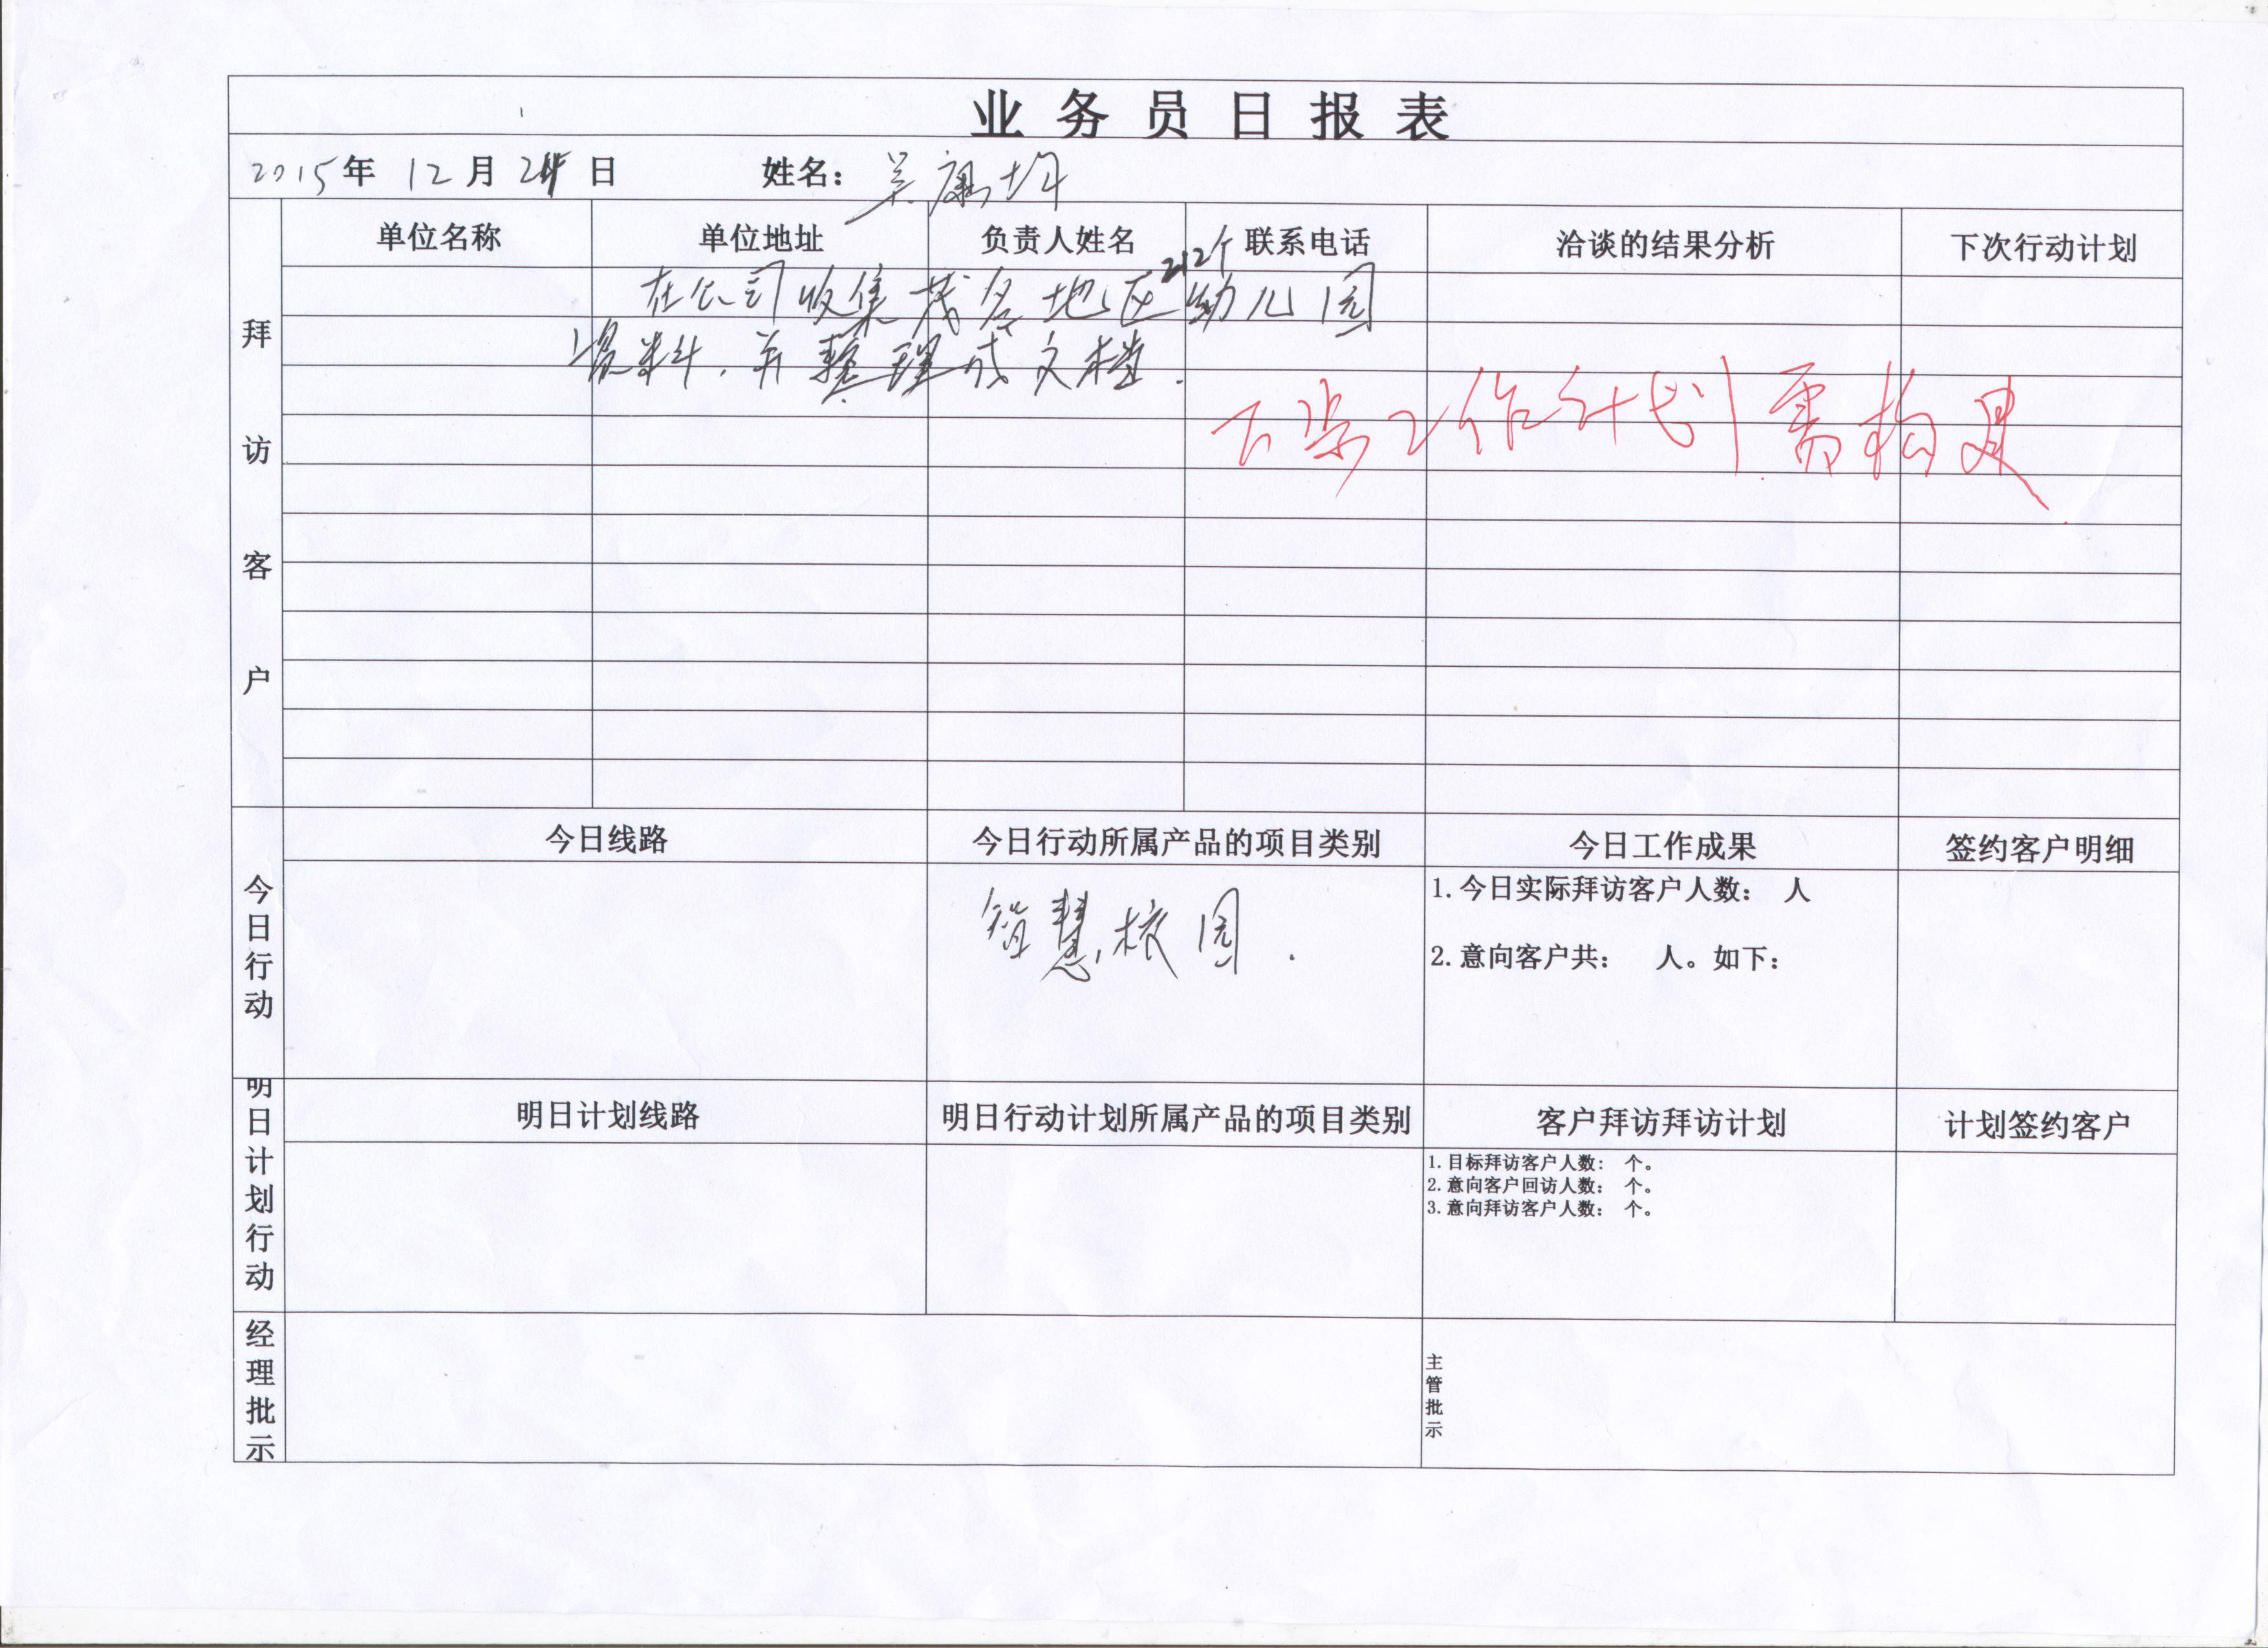 业务员日报表
2015年 12月 24日 姓名：吴
单位名称 单位地址 负责人姓名 联系电话 洽谈的结果分析 下次行动计划
拜访客户
212个
在公司收集茂名地区幼儿园
资料，并整理成文档.
工作计划需构建
今日行动
今日线路 今日行动所属产品的项目类别 今日工作成果 签约客户明细
智慧校园.
1.今日实际拜访客户人数： 人
2.意向客户共： 人。如下：
明日计划行动
明日计划线路 明日行动计划所属产品的项目类别 客户拜访拜访计划 计划签约客户
1.目标拜访客户人数： 个。
2.意向客户回访人数： 个。
3.意向拜访客户人数： 个。
经理批示
主管批示